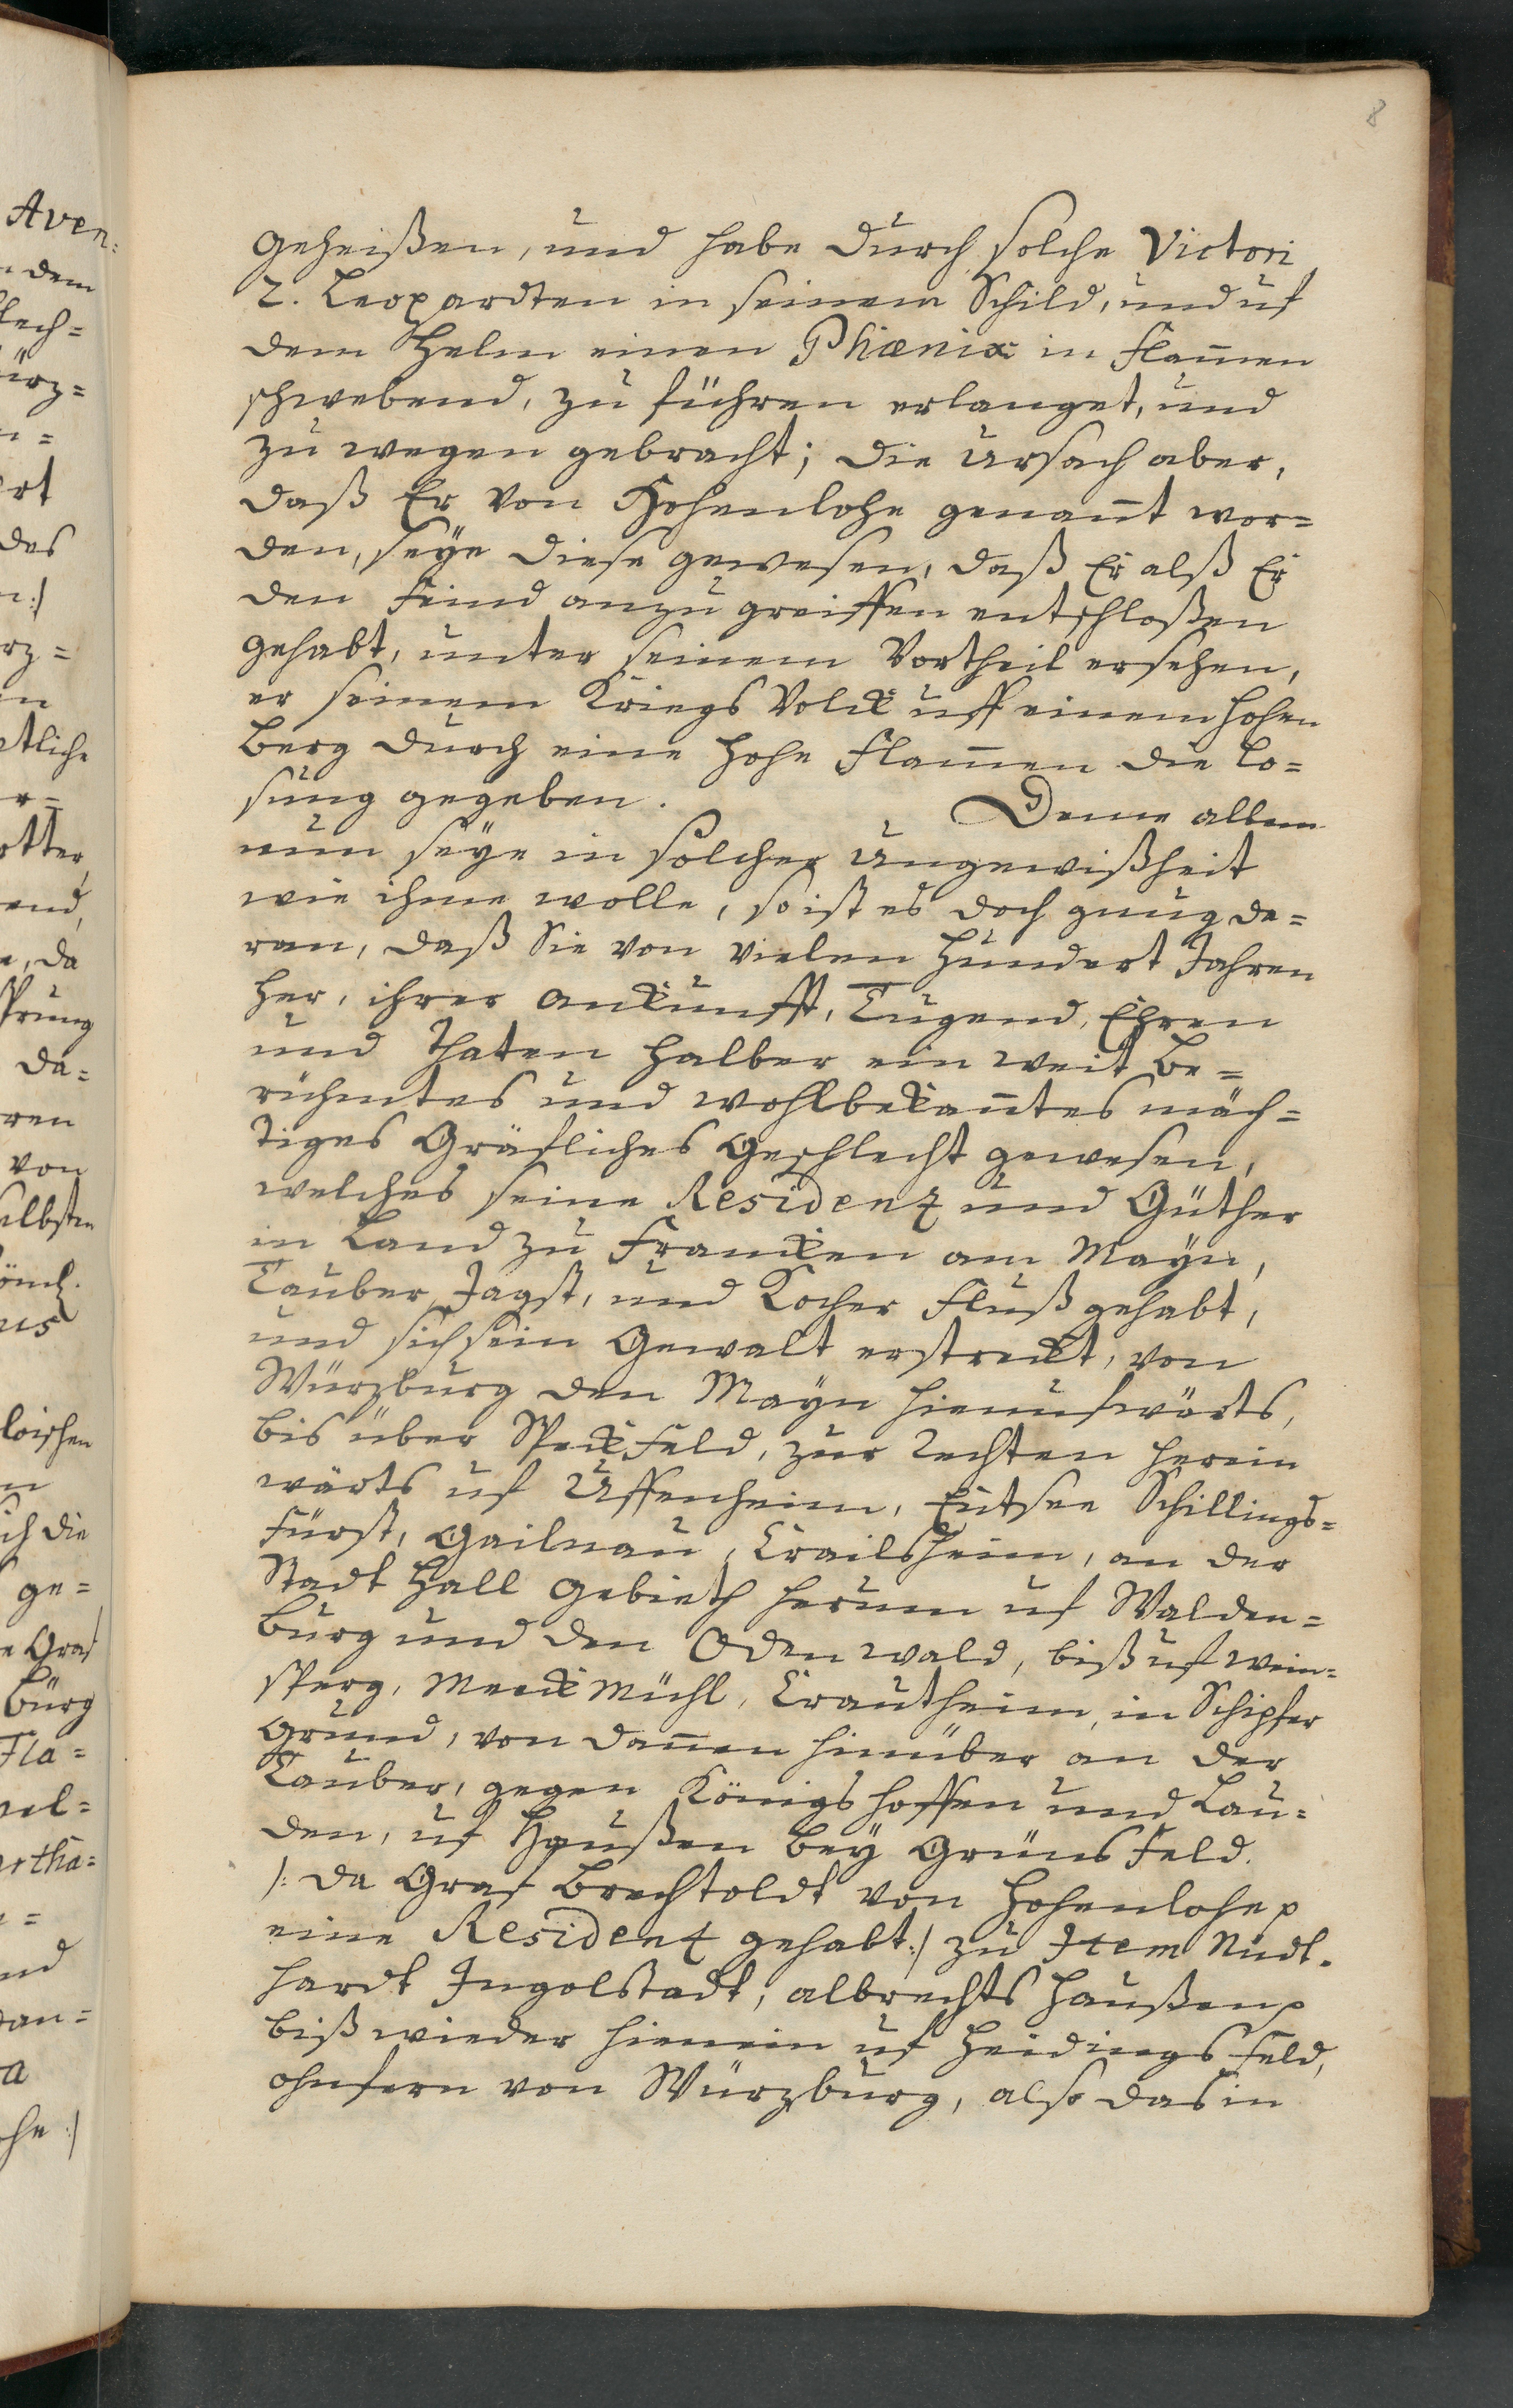 8
geheißen, und habe durch solche Victori
2. Leopardten in seinem Schild, und uf
dem Helm einen Phœnix in Flam̄en
schwebend, zu führen erlanget, und
zu wegen gebracht; die Ursach aber,
daß Er von Hohenlohe genan̄t wor=
den, seÿe diese gewesen, daß Er alß Er
den Feind anzugreiffen entschloßen
gehabt, unter seinem Vortheil ersehen,
er seinem Kriegs Volck uff einem hohen
Berg durch eine hohe Flam̄en die Lo=
sung gegeben. Deme allem
nun seÿe in solcher Ungewißheit
wie ihme wolle, so ist es doch gnug da=
ran, daß Sie von vielen hundert Jahren
her, ihrer ankunfft, Tugend, Ehren
und Thaten halber ein weit be=
rühmtes und wohlbekan̄tes mäch=
tiges Gräfliches Geschlecht gewesen,
welches seine Residentz und Güther
in Land zu Francken am Maÿn,
Tauber, Jagst, und Kocher Fluß gehabt,
und sich sein Gewalt erstreckt, von
Würzburg den Maÿn hienufwärts,
bis über Speckfeld, zur rechten herein
wärts uf Uffenheim, Entsee Schillings=
fürst, Gailnau, Crailsheim, an der
Stadt Hall Gebieth herum uf Walden=
burg und den Odenwald, biß uf Wein=
sperg, Meckmühl, Crautheim, in Schipfer
grund, von dan̄en hinüber an der
Tauber, gegen Königshoffen und Lau=
den, uf Haußen beÿ Grünsfeld.
/: da Graf Brechtoldt von Hohenlohe
eine Residentz gehabt :/ zu Item Riedt=
hardt Ingolstadt, albrechtshaußen
biß wieder hienein uf Heidingsfeld,
ohnfern von Würzburg, also das in